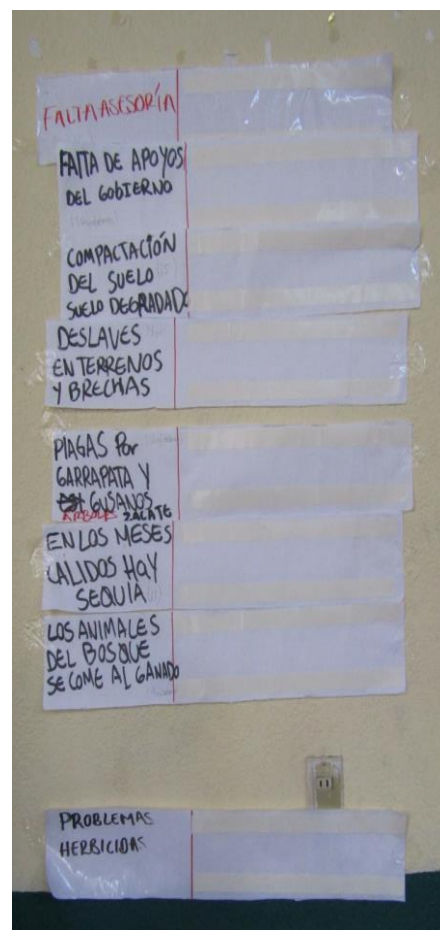 FALTA ASESORÍA
FALTA DE APOYOS
DEL GOBIERNO
COMPACTACIÓN
DEL SUELO
SUELO DEGRADADO
DESLAVES
EN TERRENOS
Y BRECHAS
PLAGAS POR
GARRAPATA Y
GUSANOS
ARBOLES ZACATE
EN LOS MESES
CALIDOS HAY
SEQUIA
LOS ANIMALES
DEL BOSQUE
SE COME AL GANADO
PROBLEMAS
HERBICIDAS